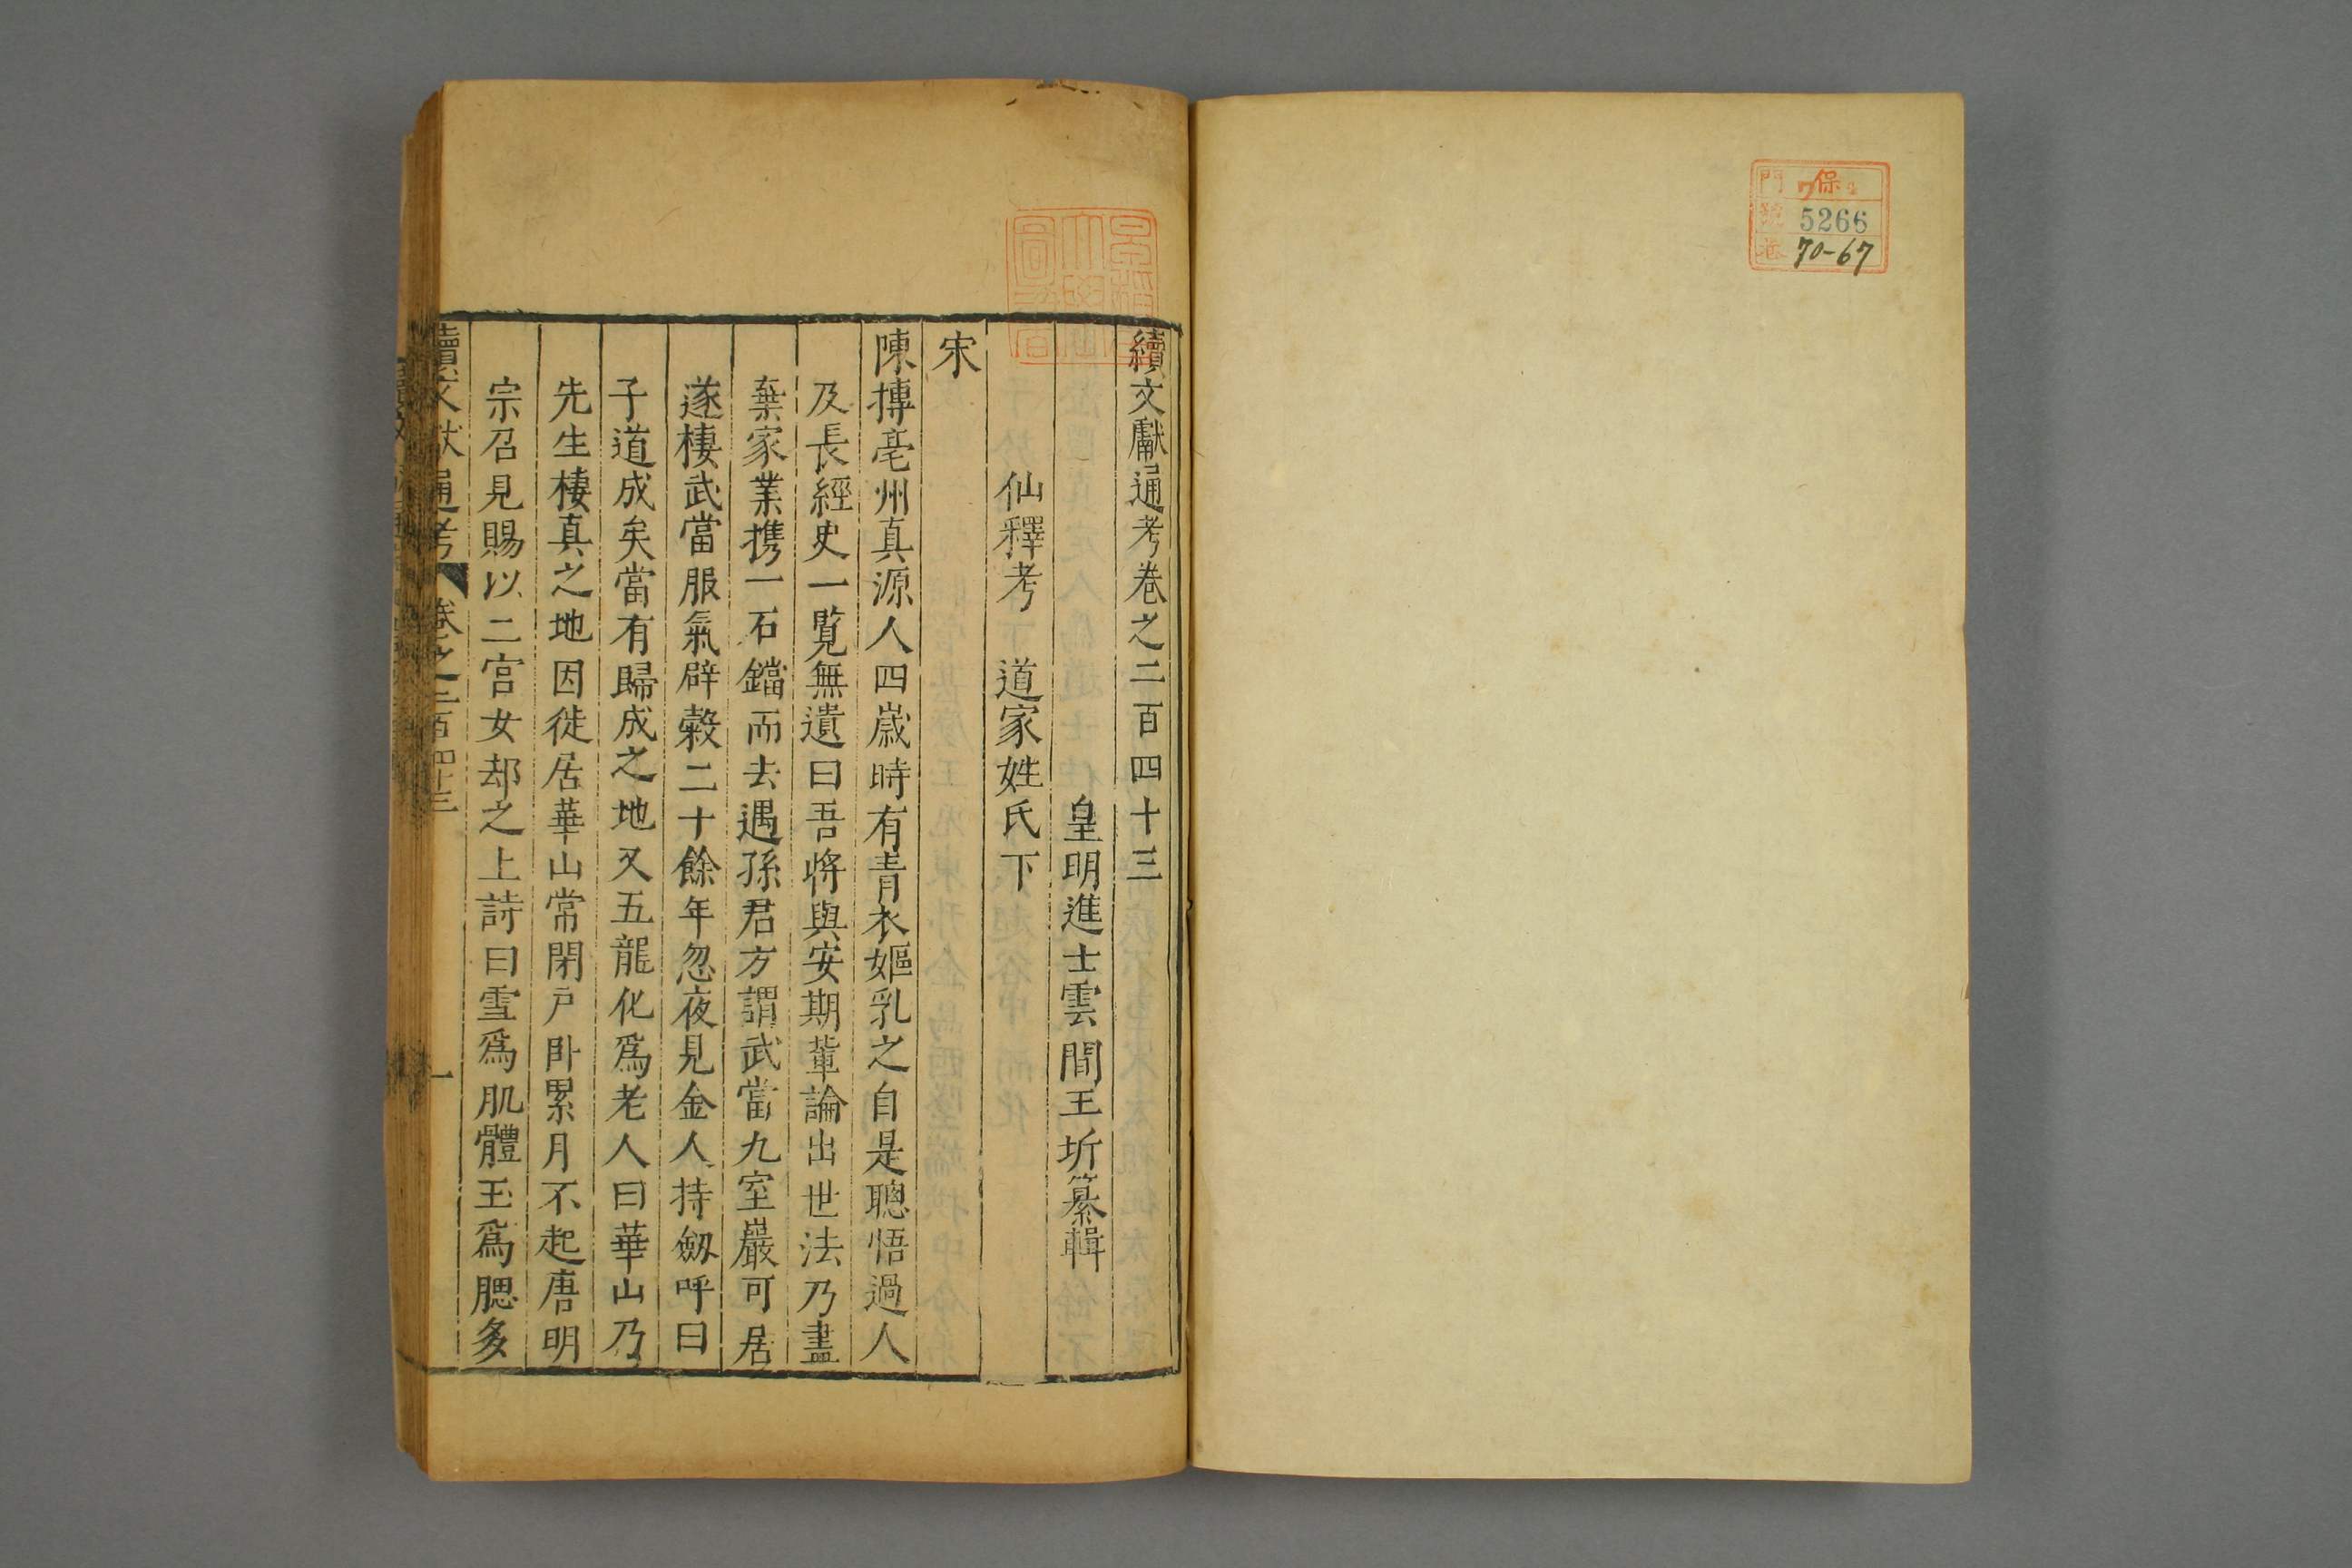 門 保
號 5266
卷 70-67
續文獻通考卷之二百四十三
皇明進士雲間王圻纂輯
仙釋考 道家姓氏下
宋
陳摶亳州真源人四歲時有青衣嫗乳之自是聰悟過人
及長經史一覧無遺曰吾將與安期輩論出世法乃盡
棄家業携一石鐺而去遇孫君方謂武當九室巖可居
遂棲武當服氣辟穀二十餘年忽夜見金人持劔呼曰
子道成矣當有歸成之地又五龍化爲老人曰華山乃
先生棲真之地因徙居華山常閉戶卧累月不起唐明
宗召見賜以二宮女却之上詩曰雪爲肌體玉爲腮多
續文獻通考 卷之二百四十三 一